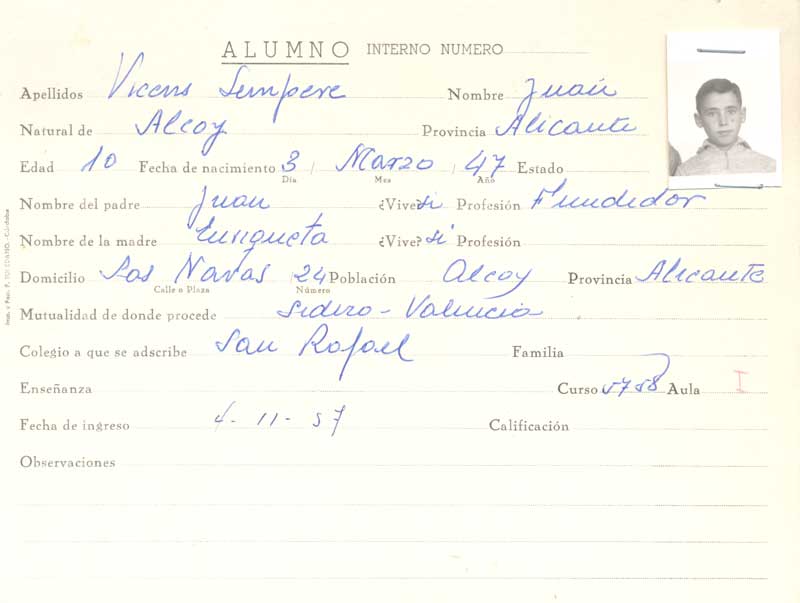 ALUMNO INTERNO NUMERO
Apellidos Vicens Sempere Nombre Juan
Natural de Alcoy Provincia Alicante
Edad 10 Fecha de nacimiento 3 / Marzo / 47 Estado
Día Mes Año
Nombre del padre Juan ¿Vive? si Profesión Fundidor
Nombre de la madre Enriqueta ¿Vive? si Profesión
Domicilio Las Navas /24 Población Alcoy Provincia Alicante
Calle o Plaza Número
Mutualidad de donde procede Sidero - Valencia
Colegio a que se adscribe San Rafael Familia
Enseñanza Curso 57 58 Aula I
Fecha de ingreso 4 - 11 - 57 Calificación
Observaciones